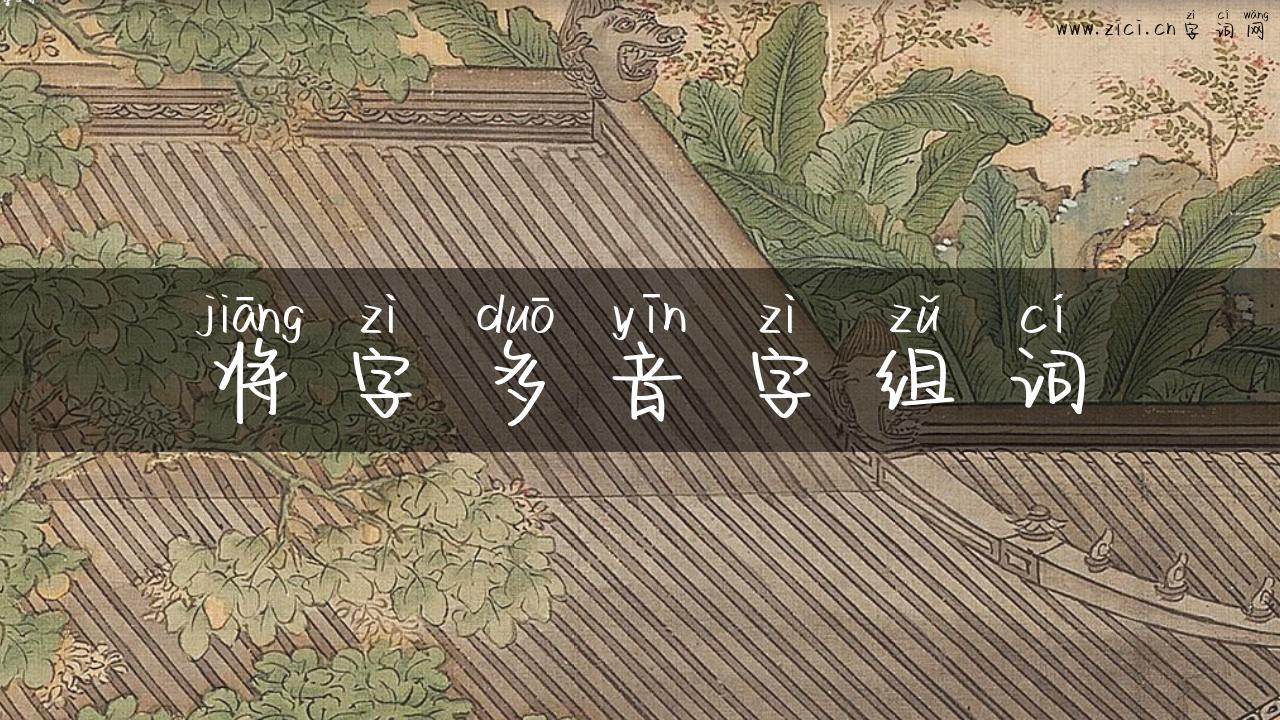 zì cí wǎng
www.zici.cn 字词网
jiāng zì duō yīn zì zǔ cí
将字多音字组词